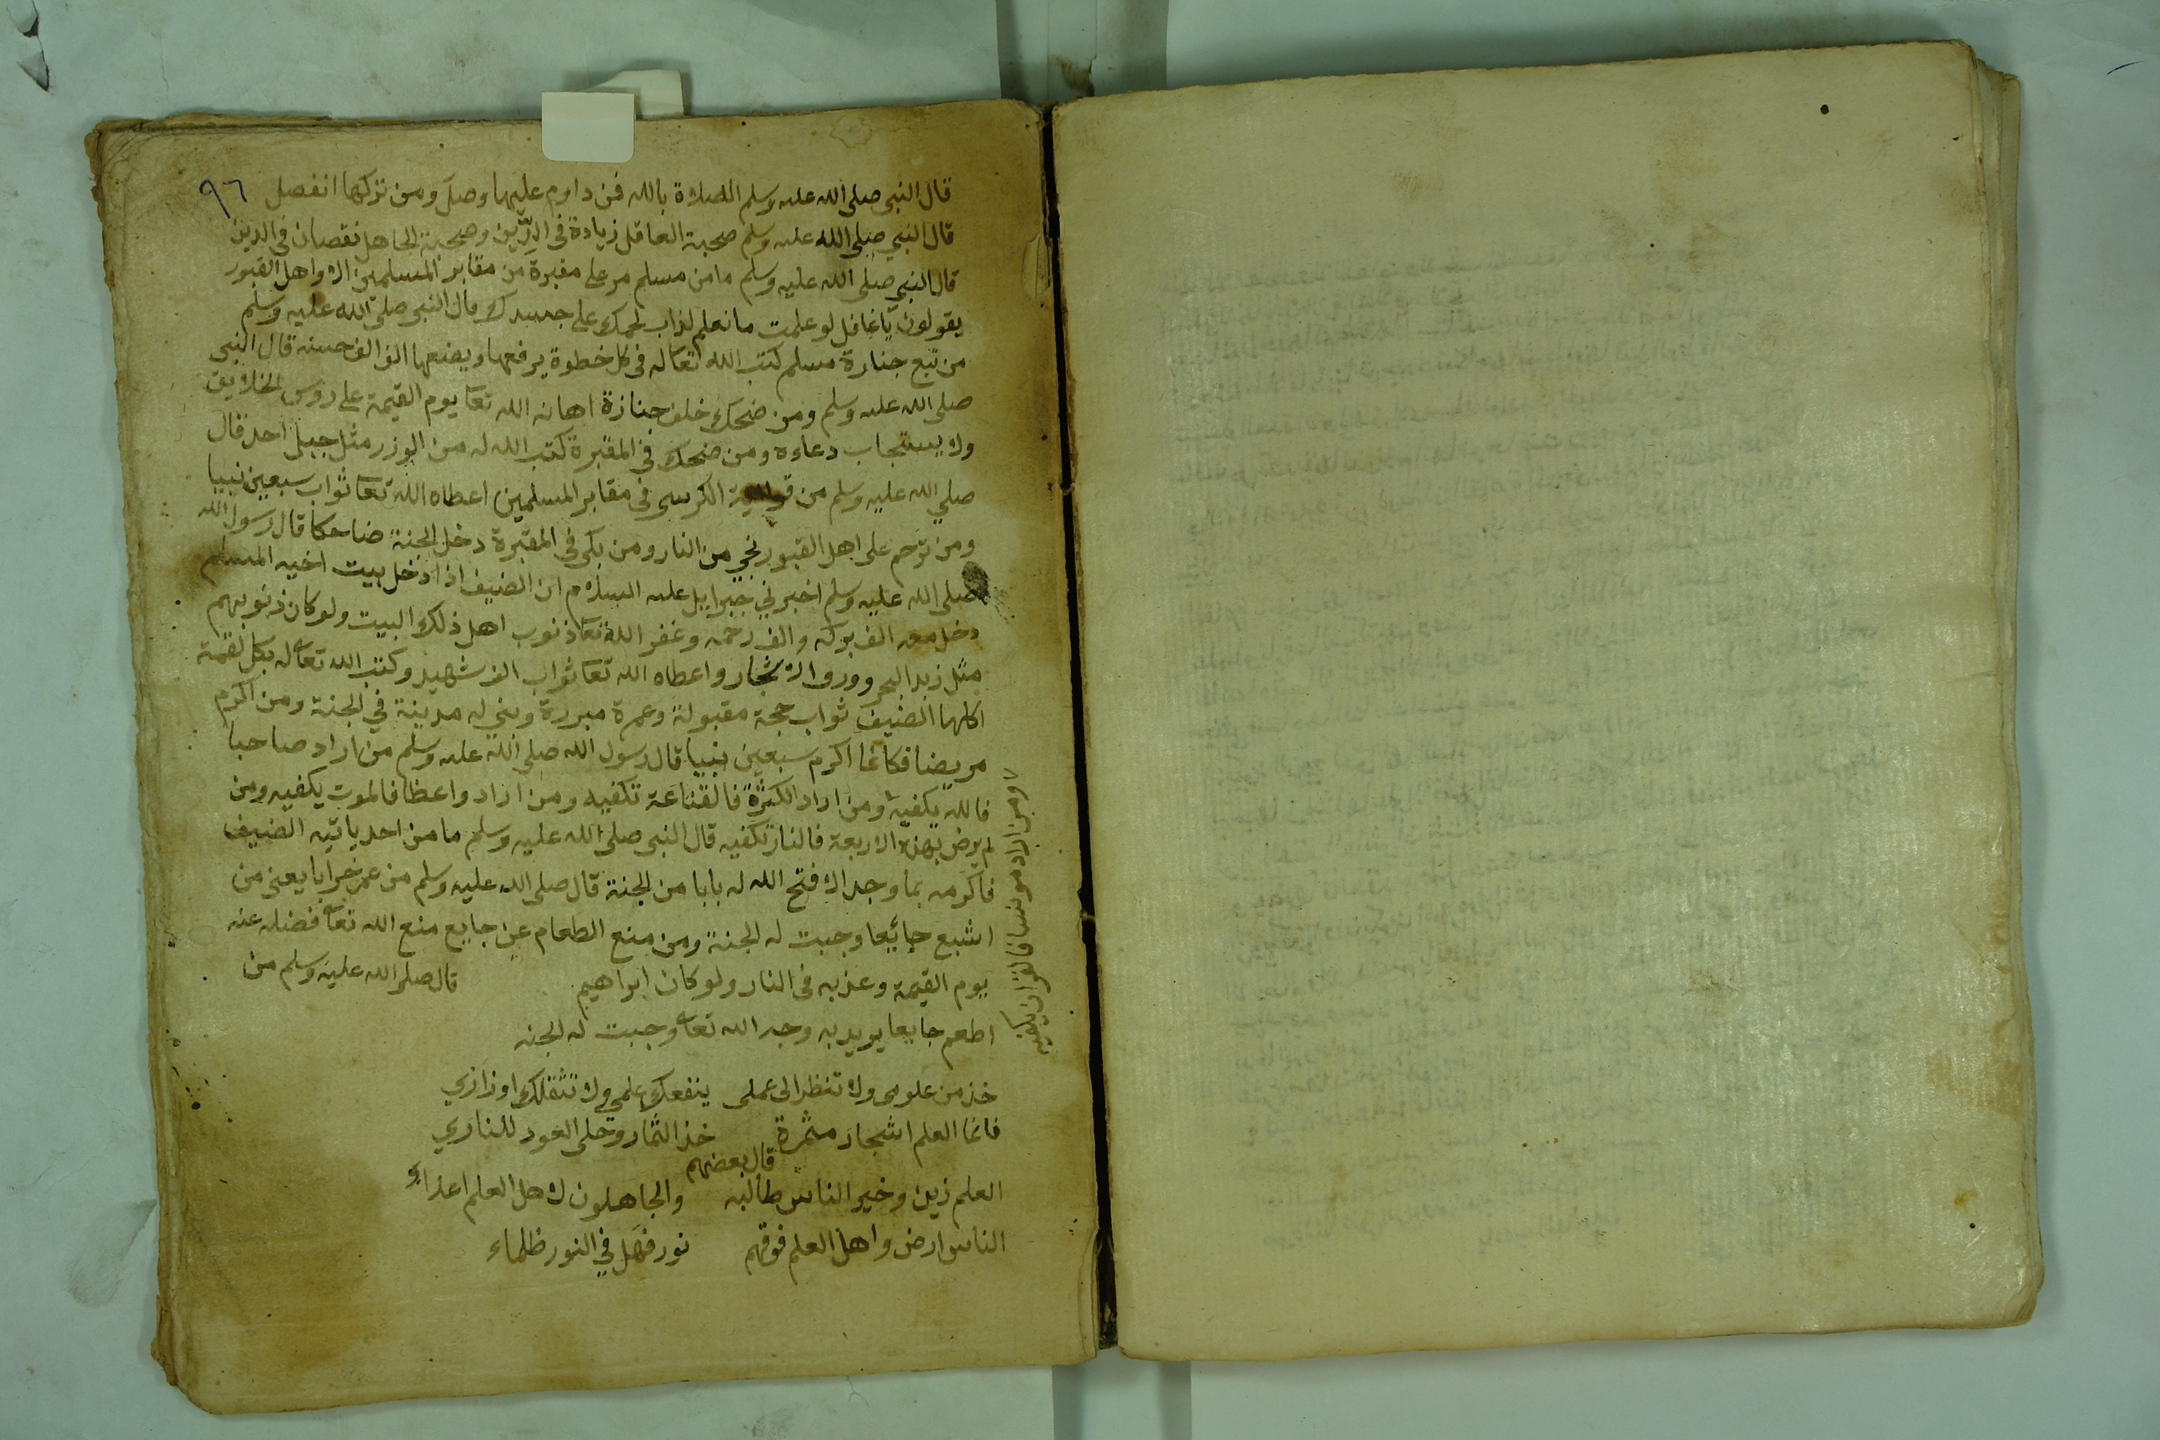 ٩٦
قال النبي صلى الله عليه وسلم الصلاة بالله فمن داوم عليها وصل ومن تركها انفصل
قال النبي صلى الله عليه وسلم صحبة العاقل زيادة في الدّين وصحبة الجاهل نقصان في الدين
قال النبي صلى الله عليه وسلم مامن مسلم مر على مقبرة من مقابر المسلمين الا واهل القبور
يقولون يا غافل لو علمت ما نعلم لذاب لحمك على جسدك قال النبي صلى الله عليه وسلم
من تبع جنازة مسلم كتب الله تعاله في كل خطوة يرفعها ويضعها الف الف حسنه قال النبي
صلى الله عليه وسلم ومن ضحك خلف جنازة اهانه الله تعا يوم القيمة على روس الخلايق
ولا يستجاب دعاءه ومن ضحك في المقبرة كتب الله له من الوزر مثل جبل احد قال
صلي الله عليه وسلم من قرا اية الكرسي في مقابر المسلمين اعطاه الله تعا ثواب سبعين نبيا
ومن ترحم على اهل القبور نجي من النار ومن بكى في المقبرة دخل الجنة ضاحكا قال رسول الله
صلى الله عليه وسلم اخبرني جبراييل عليه السلام ان الضيف اذا دخل بيت اخيه المسلم
دخل معه الف بركه والف رحمه وغفر الله تعا ذنوب اهل ذلك البيت ولو كان ذنوبهم
مثل زبد البحر وورق الاشجار واعطاه الله تعا ثواب الف شهيد وكتب الله تعا له بكل لقمة
اكلها الضيف ثواب حجة مقبولة وعمرة مبررة وبني له مدينة في الجنة ومن اكرم
مريضا فكانما اكرم سبعين نبيا قال رسول الله صلى الله عليه وسلم من اراد صاحبا
فالله يكفيه ومن اراد الكثرة فالقناعة تكفيه ومن اراد واعظا فالموت يكفيه ومن
لم يرض بهذه الاربعة فالنار تكفيه قال النبي صلى الله عليه وسلم ما من احد ياتيه الضيف
فاكرمه بما وجد الا فتح الله له بابا من الجنة قال صلى الله عليه وسلم من عمر خرابا يعني من
اشبع جائعا وجبت له الجنة ومن منع الطعام عن جايع منع الله تعا فضله عنه
يوم القيمة وعذبه في النار ولو كان ابراهيم قال صلى الله عليه وسلم من
اطعم جايعا يريد به وجه الله تعا وجبت له الجنه
ومن اراد مونسا فالقران يكفيه
خذ من علومي ولا تنظر الى عملي ينفعك علمي ولا تثقلك اوزاري
فانما العلم اشجار مثمرة خذ الثمار وخلى العود للناري
قال بعضهم
العلم زين وخير الناس طالبه والجاهلون لاهل العلم اعداء
الناس ارض واهل العلم فوقهم نور فهل في النور ظلماء